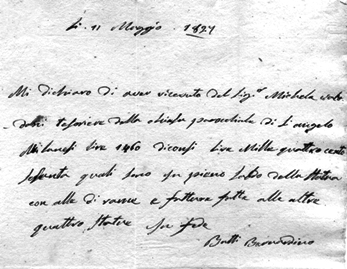 Li. 11 Maggio. 1827
Mi dichiaro di aver ricevuto del Sig.r Michele
tesoriere della chiesa parochiale di S. angelo
Milanesi lire 1460 diconsi lire Mille quattro cento
sesanta quali sono per saldo della
con alle di rame e fattura fatta alle altre
quattro statere per fede
Batti Bernardino